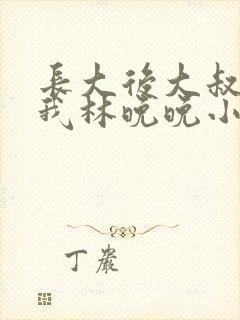 長大後大叔
我林晚晚小
丁巖